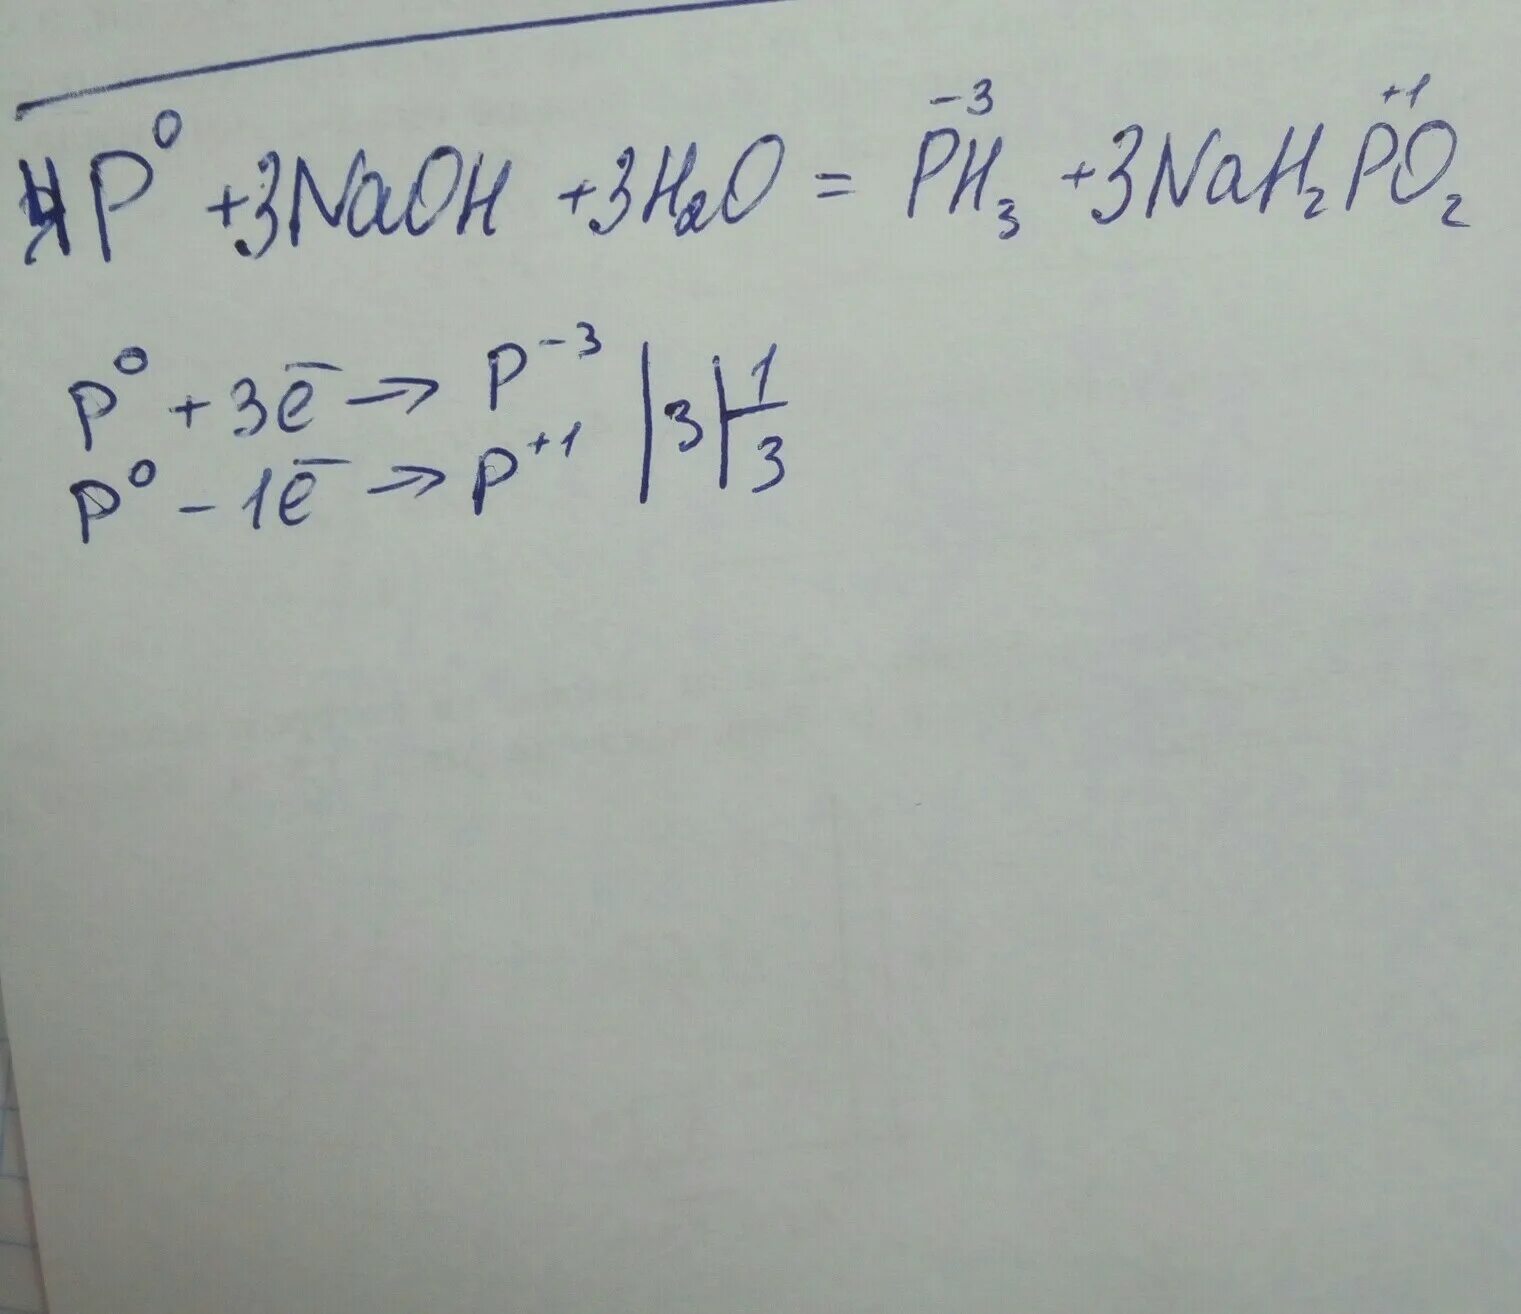 4P⁰ + 3NaOH + 3H₂O = P⁻³H₃ + 3NaH₂P⁺¹O₂
P⁰ + 3e̅ → P⁻³ | 3 | 1
P⁰ - 1e̅ → P⁺¹ | 3